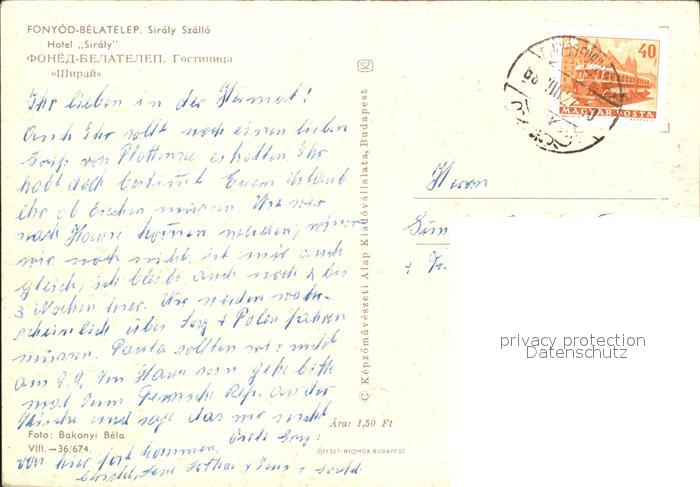 FONYÓD-BÉLATELEP. Sirály Szálló
Hotel „Sirály"
ФОНЁД-БЕЛАТЕЛЕП. Гостиница
«Ширай»
Ihr lieben in der Heimat!
Auch Ihr sollt noch einen lieben
von Plattensee erhalten Ihr
habt doch bestimmt Euren Urlaub
müssen. Wie wir
nach Hause kommen werden, wissen
wir noch nicht, ist mir auch
gleich, ich bleibe auch noch 2 bis
3 Wochen hier. Wir werden wahr-
scheinlich über Polen fahren
müssen. Paula sollten wir nicht
am 9.9. Im Haus sein gehe bitte
mal zum Rep. an der
Kirche und sage das wir nicht
von hier fort kommen. Viele
Lothar + Jens +
Foto: Bakonyi Béla
VIII.—36/674.
C Képzőművészeti Alap Kiadóvállalata, Budapest
SZ
40
MAGYAR POSTA
Herrn
Ára: 1,50 Ft
OFFSET-NYOMDA BUDAPEST
privacy protection
Datenschutz